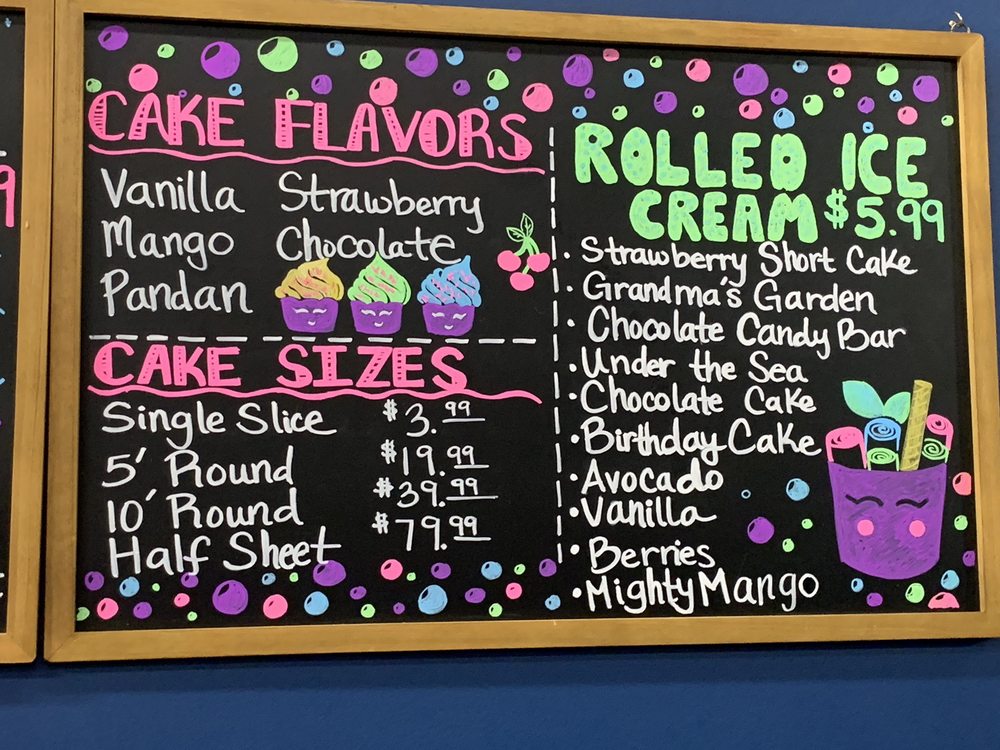 CAKE FLAVORS
Vanilla Strawberry
Mango Chocolate
Pandan
CAKE SIZES
Single Slice $3.99
5' Round $19.99
10' Round $39.99
Half Sheet $79.99
ROLLED ICE
CREAM $5.99
• Strawberry Short Cake
• Grandma's Garden
• Chocolate Candy Bar
• Under the Sea
• Chocolate Cake
• Birthday Cake
• Avocado
• Vanilla
• Berries
• Mighty Mango
9